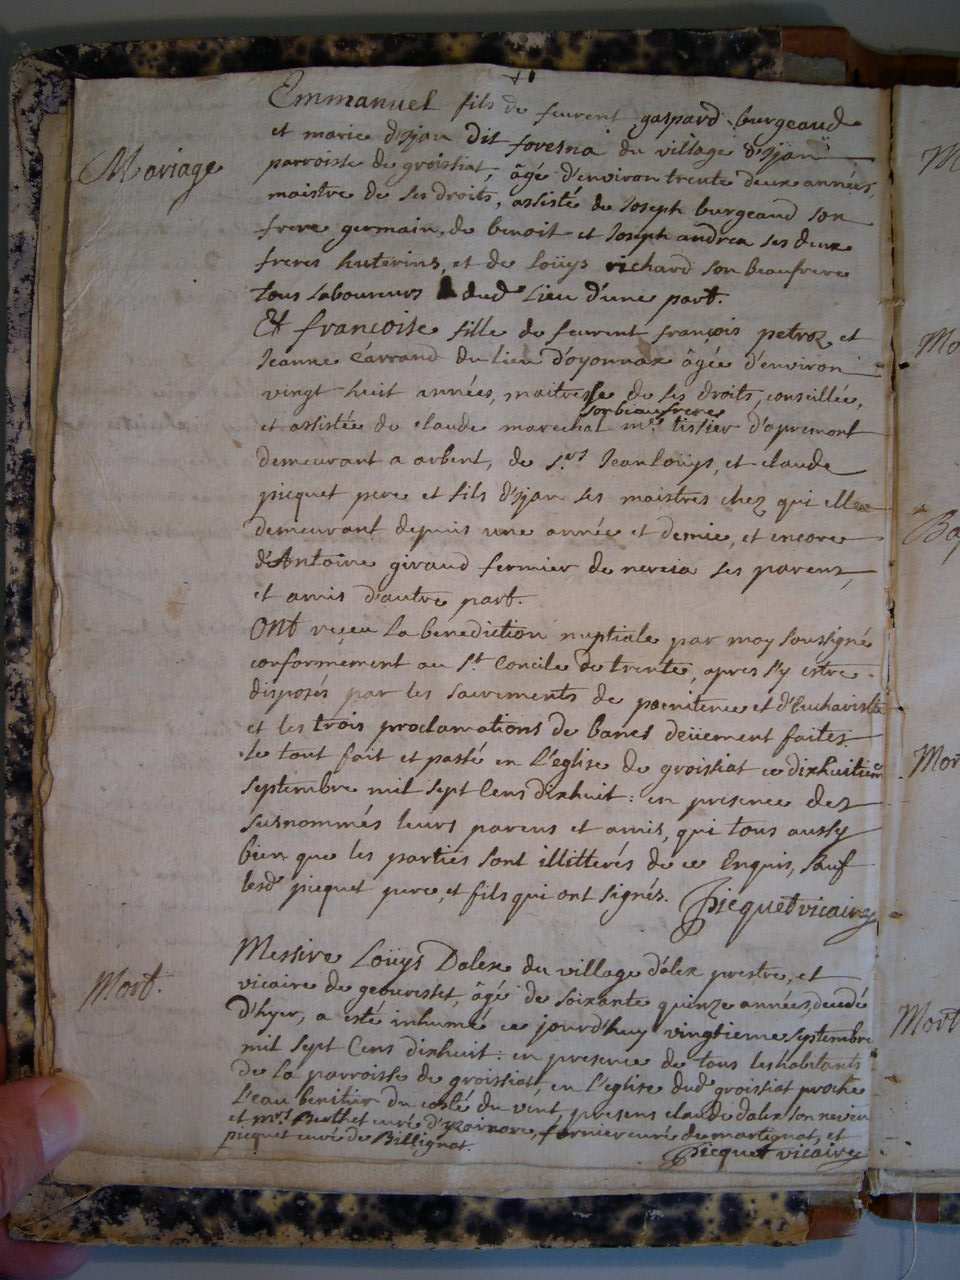 Mariage
Emmanuel fils de feurent gaspard burgeaud
et marie d'ijan dit foresna du village d'ijan
parroisse de groissiat, âgé d'environ trente deux années,
maistre de ses droits, assisté de Joseph burgeaud son
frere germain, de benoit et Joseph andrea ses deux
freres huterins, et de Loüys richard son beaufrere
tous laboureurs dud lieu d'une part.
Et francoise fille de feurent françois petroz et
Jeanne Carrand du lieu d'oyonnax âgée d'environ
vingt huit années, maitresse de ses droits, conseillée,
son beaufrere
et assistée de claude marechal mre tissier d'apremont
demeurant a arbent, de srs Jean Loüys, et claude
picquet pere et fils d'ijan ses maistres chez qui elle
demeurant depuis une année et demie, et encore
d'Antoine giraud fermier de nercia ses parens,
et amis d'autre part.
Ont reçeu la benediction nuptiale par moy soussigné
conformement au St Concile de trente, apres s'y estre
disposés par les sacrements de poenitence et d'Eucharistie
et les trois proclamations de bancs deüement faites.
Le tout fait et passé en L'eglise de groissiat ce dixhuitiem
septembre mil sept Cens dixhuit: en presence des
susnommés leurs parens et amis, qui tous aussy
bien que les parties sont illitterés de ce Enquis, sauf
lesd picquet pere, et fils qui ont signés. Picquet vicaire
Mort.
Messire Loüys Dalex du village d'alex prestre, et
vicaire de geovresset, âgé de soixante quinze années, decedé
D'hyer, a esté inhumé ce jourd'huy vingtieme septembre
mil sept Cens dixhuit: en presence de tous les habitants
de la parroisse de groissiat, en L'eglise dud groissiat proche
L'eau benitier du costé du vent, presens claude dalex son neveu
et mrs Buthet curé d' fornier curé de martignat, et
picquet curé de Billignat. Picquet vicaire
Mort